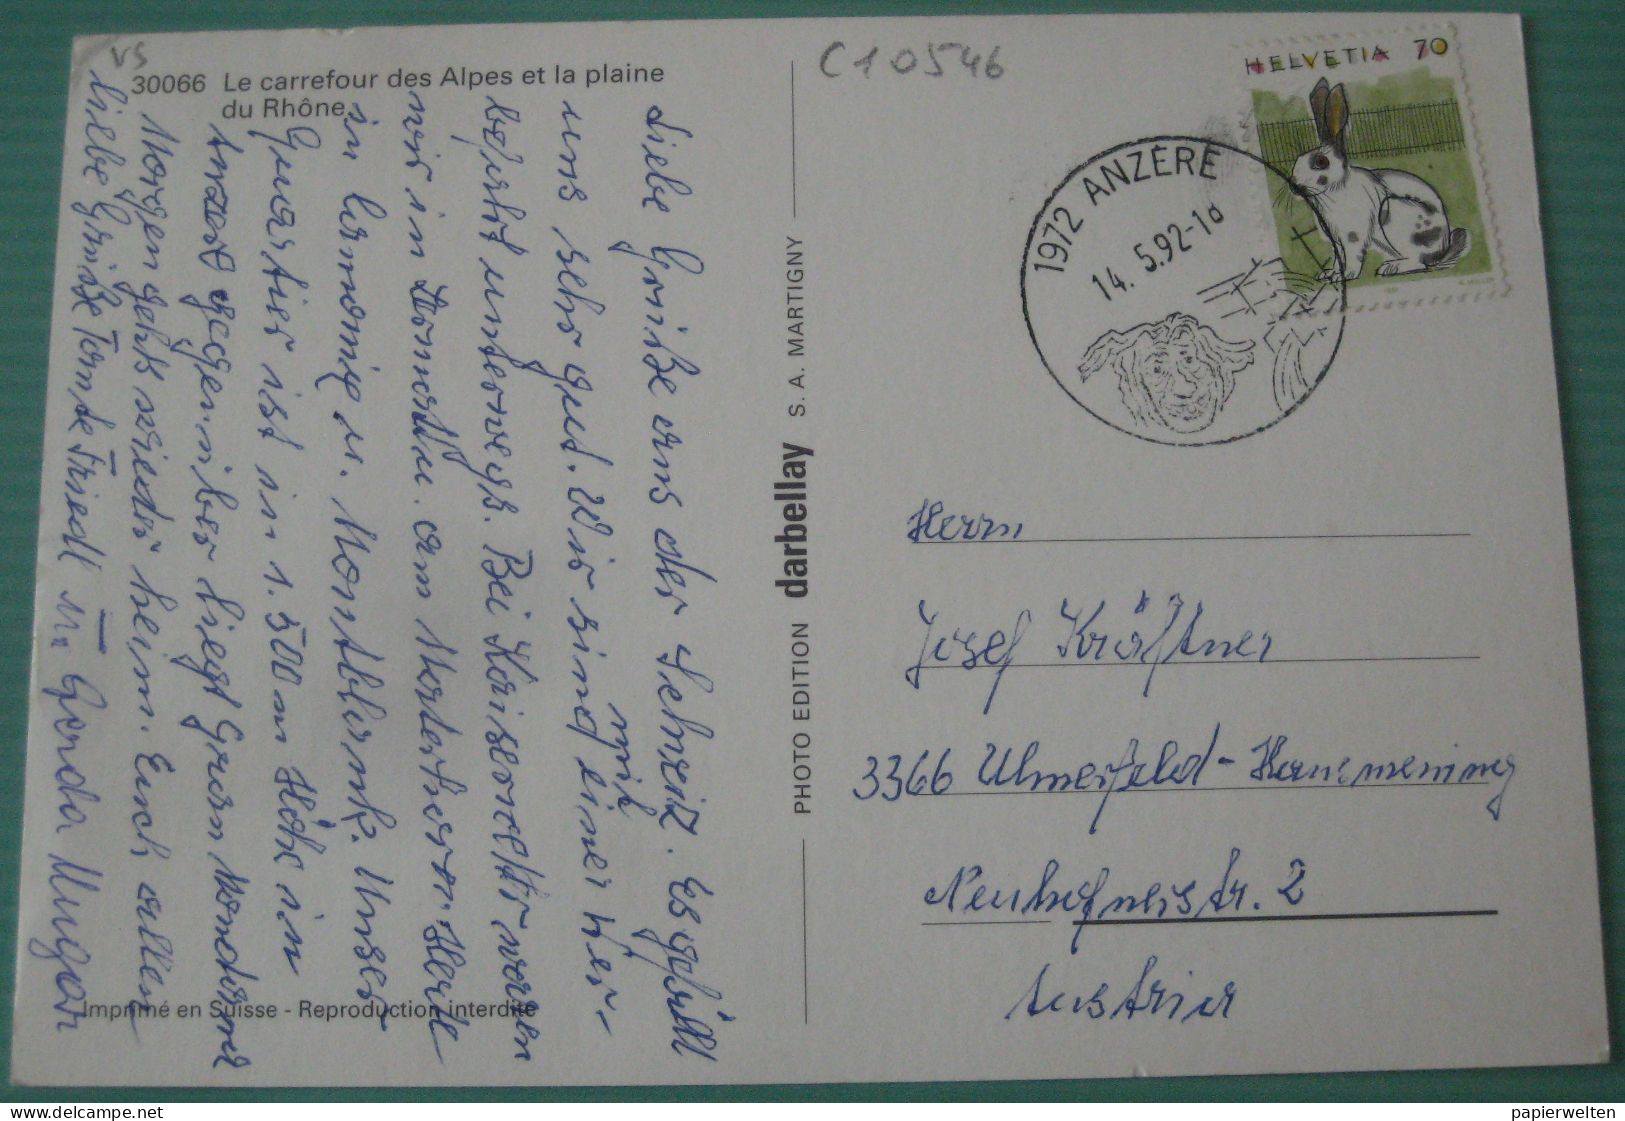 VS
C10546
30066 Le carrefour des Alpes et la plaine
du Rhône
HELVETIA 70
1972 ANZÈRE
14.5.92-18
Liebe Grüße aus der Schweiz. Es gefällt
uns sehr gut. Wir sind mit einer Her-
unterwegs. Bei Kaiserwetter waren
wir in u. am Matterhorn. Heute
in u. Montblank. Unser
Quartier ist in 1.500 m Höhe in
gegenüber liegt Gran
Morgen gehts wieder heim. Euch allen
liebe Grüße Tante Friedl u. Gerda Ungar
PHOTO EDITION darbellay S. A. MARTIGNY
Herrn
Josef Kräftner
3366 Ulmerfeld-Hausmening
Neuhofnerstr. 2
Austria
Imprimé en Suisse - Reproduction interdite
www.delcampe.net
papierwelten